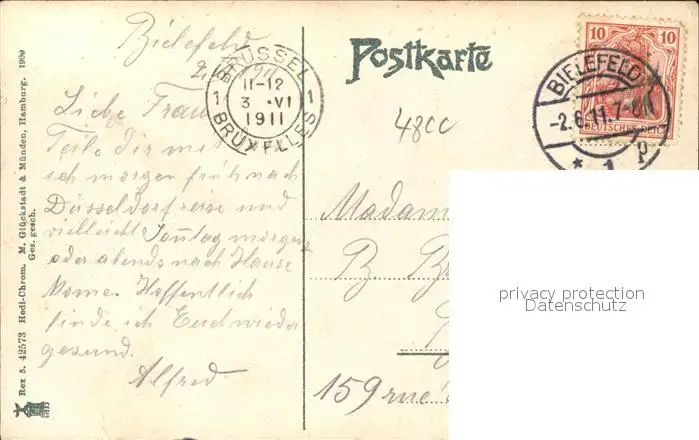 Rex 5. 42573 Hedi-Chrom. M. Glückstadt & Münden, Hamburg. 1909
Ges. gesch.
Bielefeld
BRÜSSEL
1 11-12 1
3 ·VI
1911
BRUXELLES
Liebe Frau
Teile dir mit
ich morgen früh nach
Düsseldorf reise und
vielleicht Sonntag morgens
oder abends nach Hause
komme. Hoffentlich
finde ich Euch wieder
gesund.
Alfred
Postkarte
10 10
DEUTSCHES REICH
BIELEFELD
-2.6.11. 7-8N
* 1
48cc
Madam
B
159 rue
privacy protection
Datenschutz